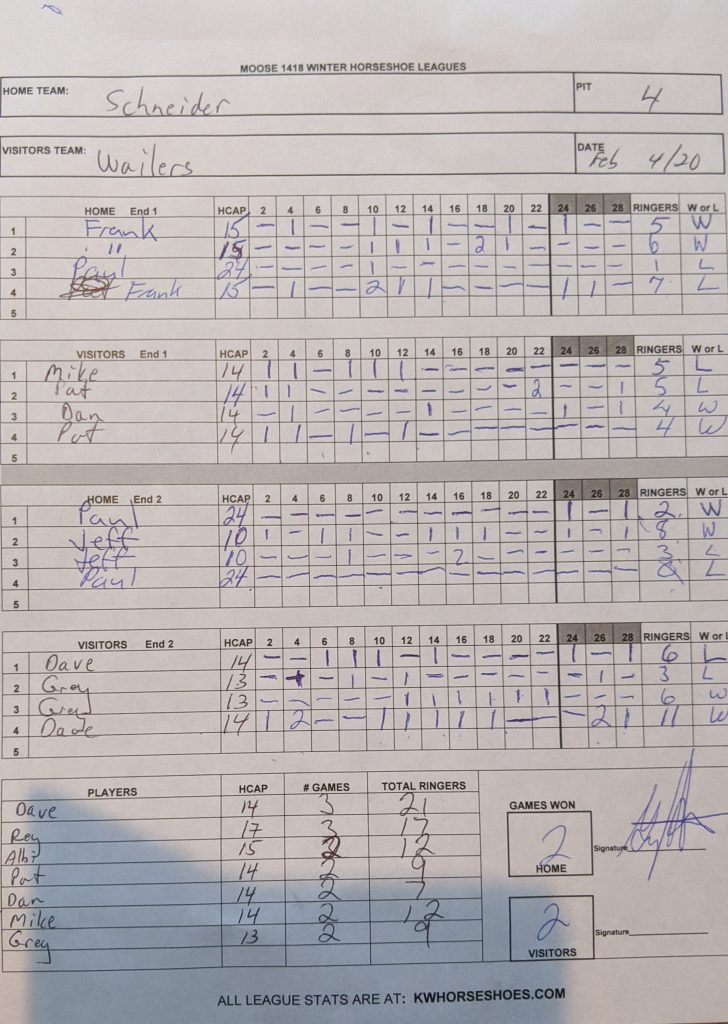 MOOSE 1418 WINTER HORSESHOE LEAGUES
HOME TEAM: Schneider PIT 4
VISITORS TEAM: Wailers DATE Feb 4/20
HOME End 1 HCAP 2 4 6 8 10 12 14 16 18 20 22 24 26 28 RINGERS W or L
1 Frank 15 – 1 – – 1 – 1 – – 1 – 1 – – 5 W
2 " 15 – – – – 1 1 1 – 2 1 – – – – 6 W
3 Paul 24 – – – – 1 – – – – – – – – – 1 L
4 Frank 15 – 1 – – 2 1 1 – – – – 1 1 – 7 L
5
VISITORS End 1 HCAP 2 4 6 8 10 12 14 16 18 20 22 24 26 28 RINGERS W or L
1 Mike 14 1 1 – 1 1 1 – – – – – – – – 5 L
2 Pat 14 1 1 – – – – – – – – 2 – – 1 5 L
3 Dan 14 – 1 – – – – 1 – – – – 1 – 1 4 W
4 Pat 14 1 1 – 1 – 1 – – – – – – – – 4 W
5
HOME End 2 HCAP 2 4 6 8 10 12 14 16 18 20 22 24 26 28 RINGERS W or L
1 Paul 24 – – – – – – – – – – – 1 – 1 2 W
2 Jeff 10 1 – 1 1 – – 1 1 1 – – 1 – 1 8 W
3 Jeff 10 – – – 1 – – – 2 – – – – – – 3 L
4 Paul 24 – – – – – – – – – – – – – – L
5
VISITORS End 2 HCAP 2 4 6 8 10 12 14 16 18 20 22 24 26 28 RINGERS W or L
1 Dave 14 – – 1 1 1 – 1 – – – – 1 – 1 6 L
2 Greg 13 – – 1 – 1 – – – – – – 1 – 3 L
3 Greg 13 – – – – – 1 1 1 1 1 1 – – – 6 W
4 Dave 14 1 2 – – 1 1 1 1 1 – – – 2 1 11 W
5
PLAYERS HCAP # GAMES TOTAL RINGERS
Dave 14 3 21
Rey 17 3 17
Albi 15 2 12
Pat 14 2 9
Dan 14 2 7
Mike 14 2 12
Greg 13 2 9
GAMES WON
2
HOME
Signature
2
VISITORS
Signature
ALL LEAGUE STATS ARE AT: KWHORSESHOES.COM